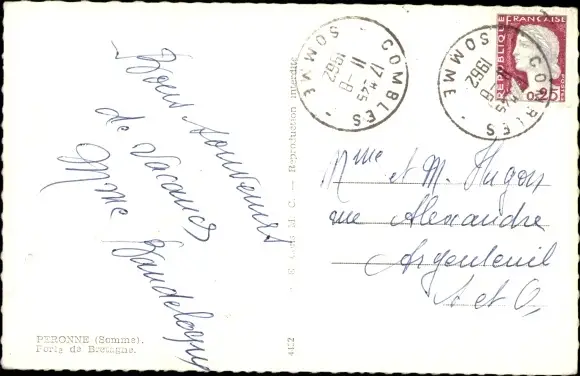 Bons souvenirs
de Vacances
Mme Vandelogny
PERONNE (Somme).
Porte de Bretagne.
4422
M. C. — Reproduction interdite
COMBLES
17 H 45
11-8
1962
SOMME
COMBLES
H 45
11-8
1962
SOMME
REPUBLIQUE FRANÇAISE
POSTES
0,25
Mme et M. Hugon
rue Alexandre
Argenteuil
S et O,